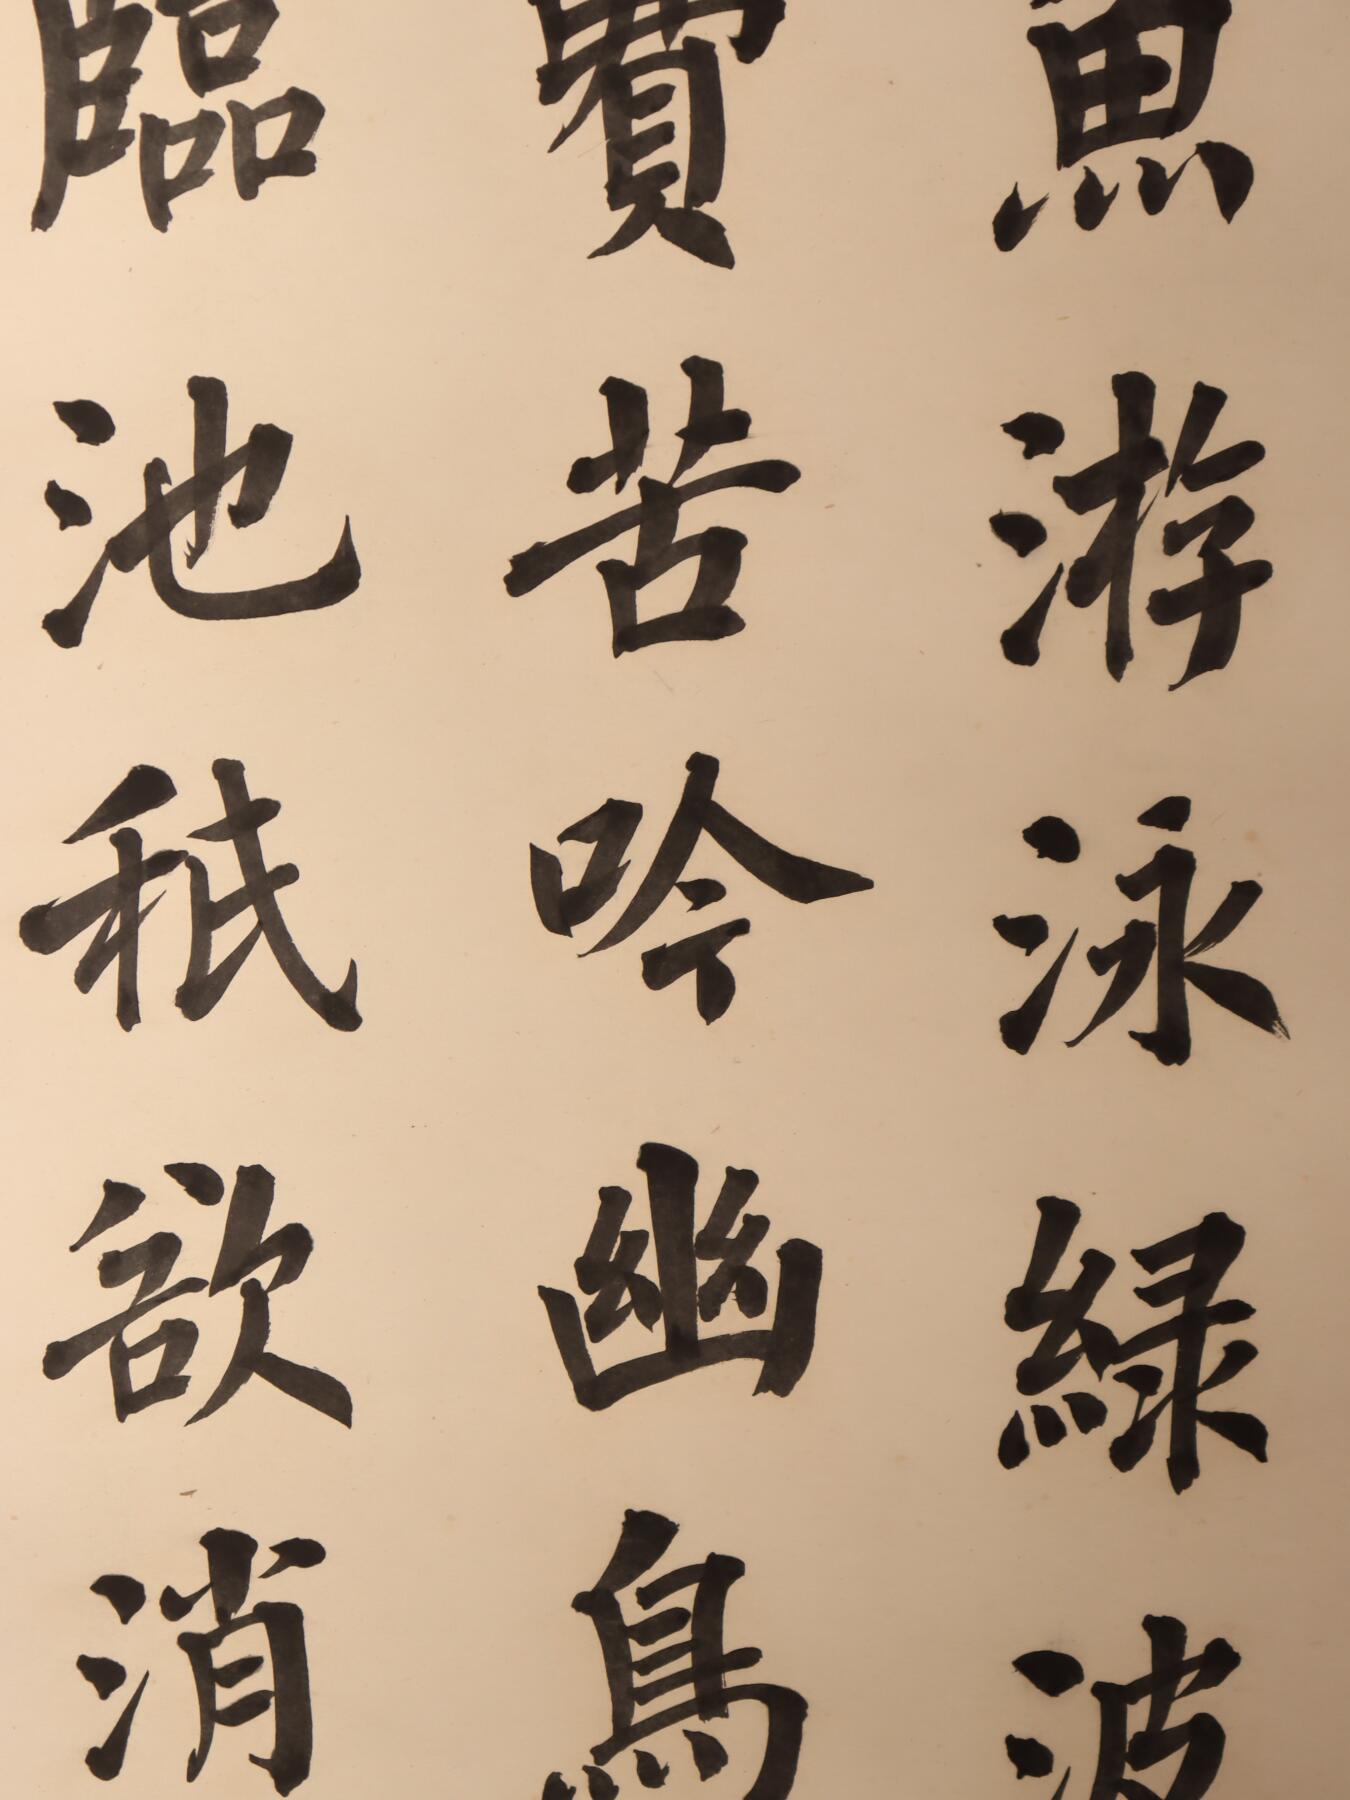 魚游泳緑波
費苦吟幽鳥
臨池秖欲消